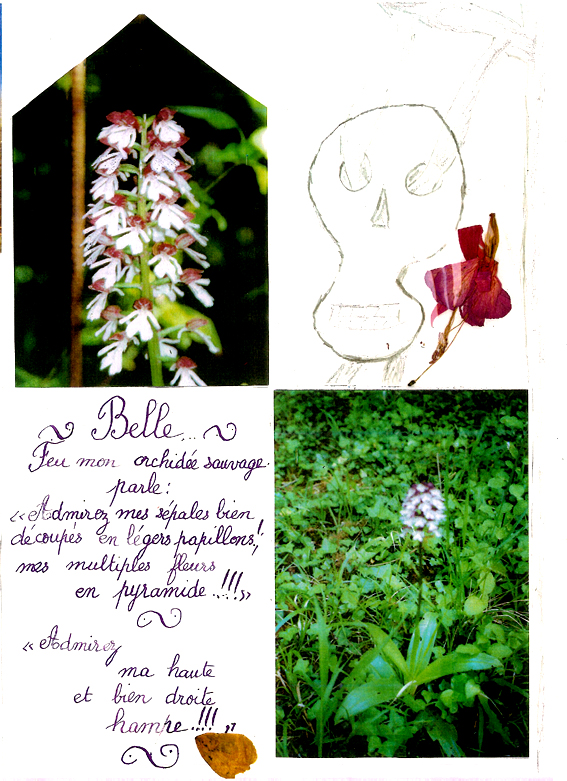 Belle...
Feu mon orchidée sauvage
parle :
« Admirez mes sépales bien
découpés en légers papillons !
mes multiples fleurs
en pyramide..!!! »
« Admirez
ma haute
et bien droite
hampe..!!! »